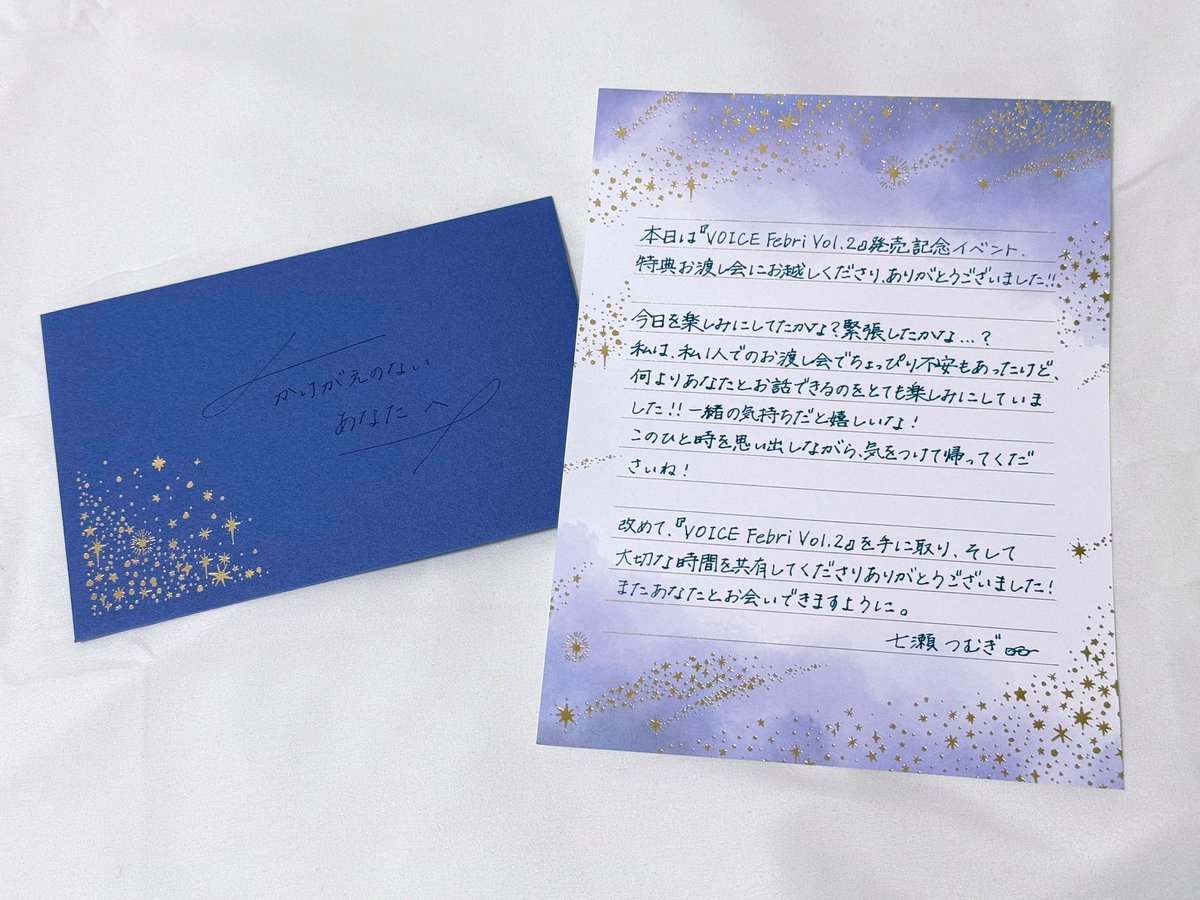 かけがえのない
あなたへ
本日は『VOICE Febri Vol.2』発売記念イベント、
特典お渡し会にお越しくださり、ありがとうございました!!
今日を楽しみにしてたかな?緊張したかな…?
私は、私1人でのお渡し会でちょっぴり不安もあったけど、
何よりあなたとお話できるのをとても楽しみにしていま
した!!一緒の気持ちだと嬉しいな!
このひと時を思い出しながら、気をつけて帰ってくだ
さいね!
改めて、『VOICE Febri Vol.2』を手に取り、そして
大切な時間を共有してくださりありがとうございました!
またあなたとお会いできますように。
七瀬つむぎ